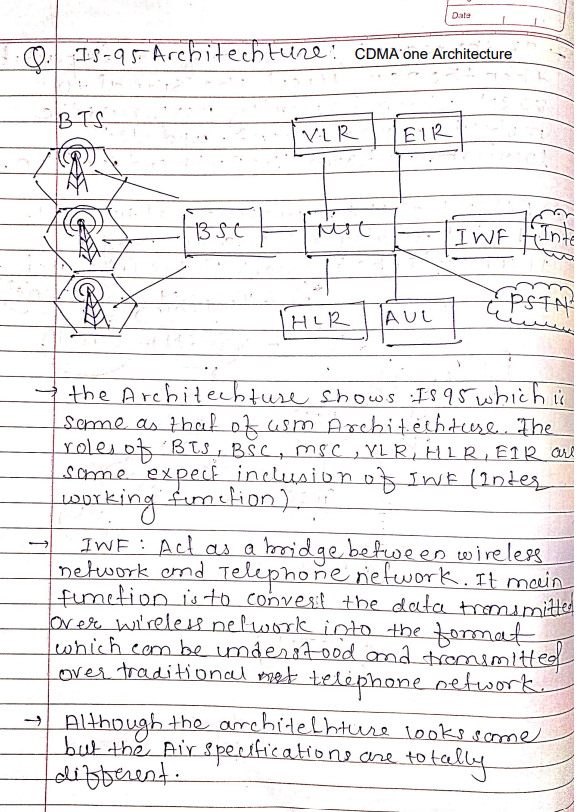 Date
Q. IS-95 Architechture: CDMA one Architecture
BTS
VLR EIR
BSC MSC IWF Inte
PSTN
HLR AUC
→ the Architechture shows IS95 which is
same as that of GSM Architechture. The
roles of BTS, BSC, MSC, VLR, HLR, EIR are
same expect inclusion of IWF (Inter
working function).
→ IWF : Act as a bridge between wireless
network and Telephone network. It main
function is to convert the data transmitted
over wireless network into the format
which can be understood and transmitted
over traditional telephone network.
→ Although the architechture looks same
but the Air specifications are totally
different.